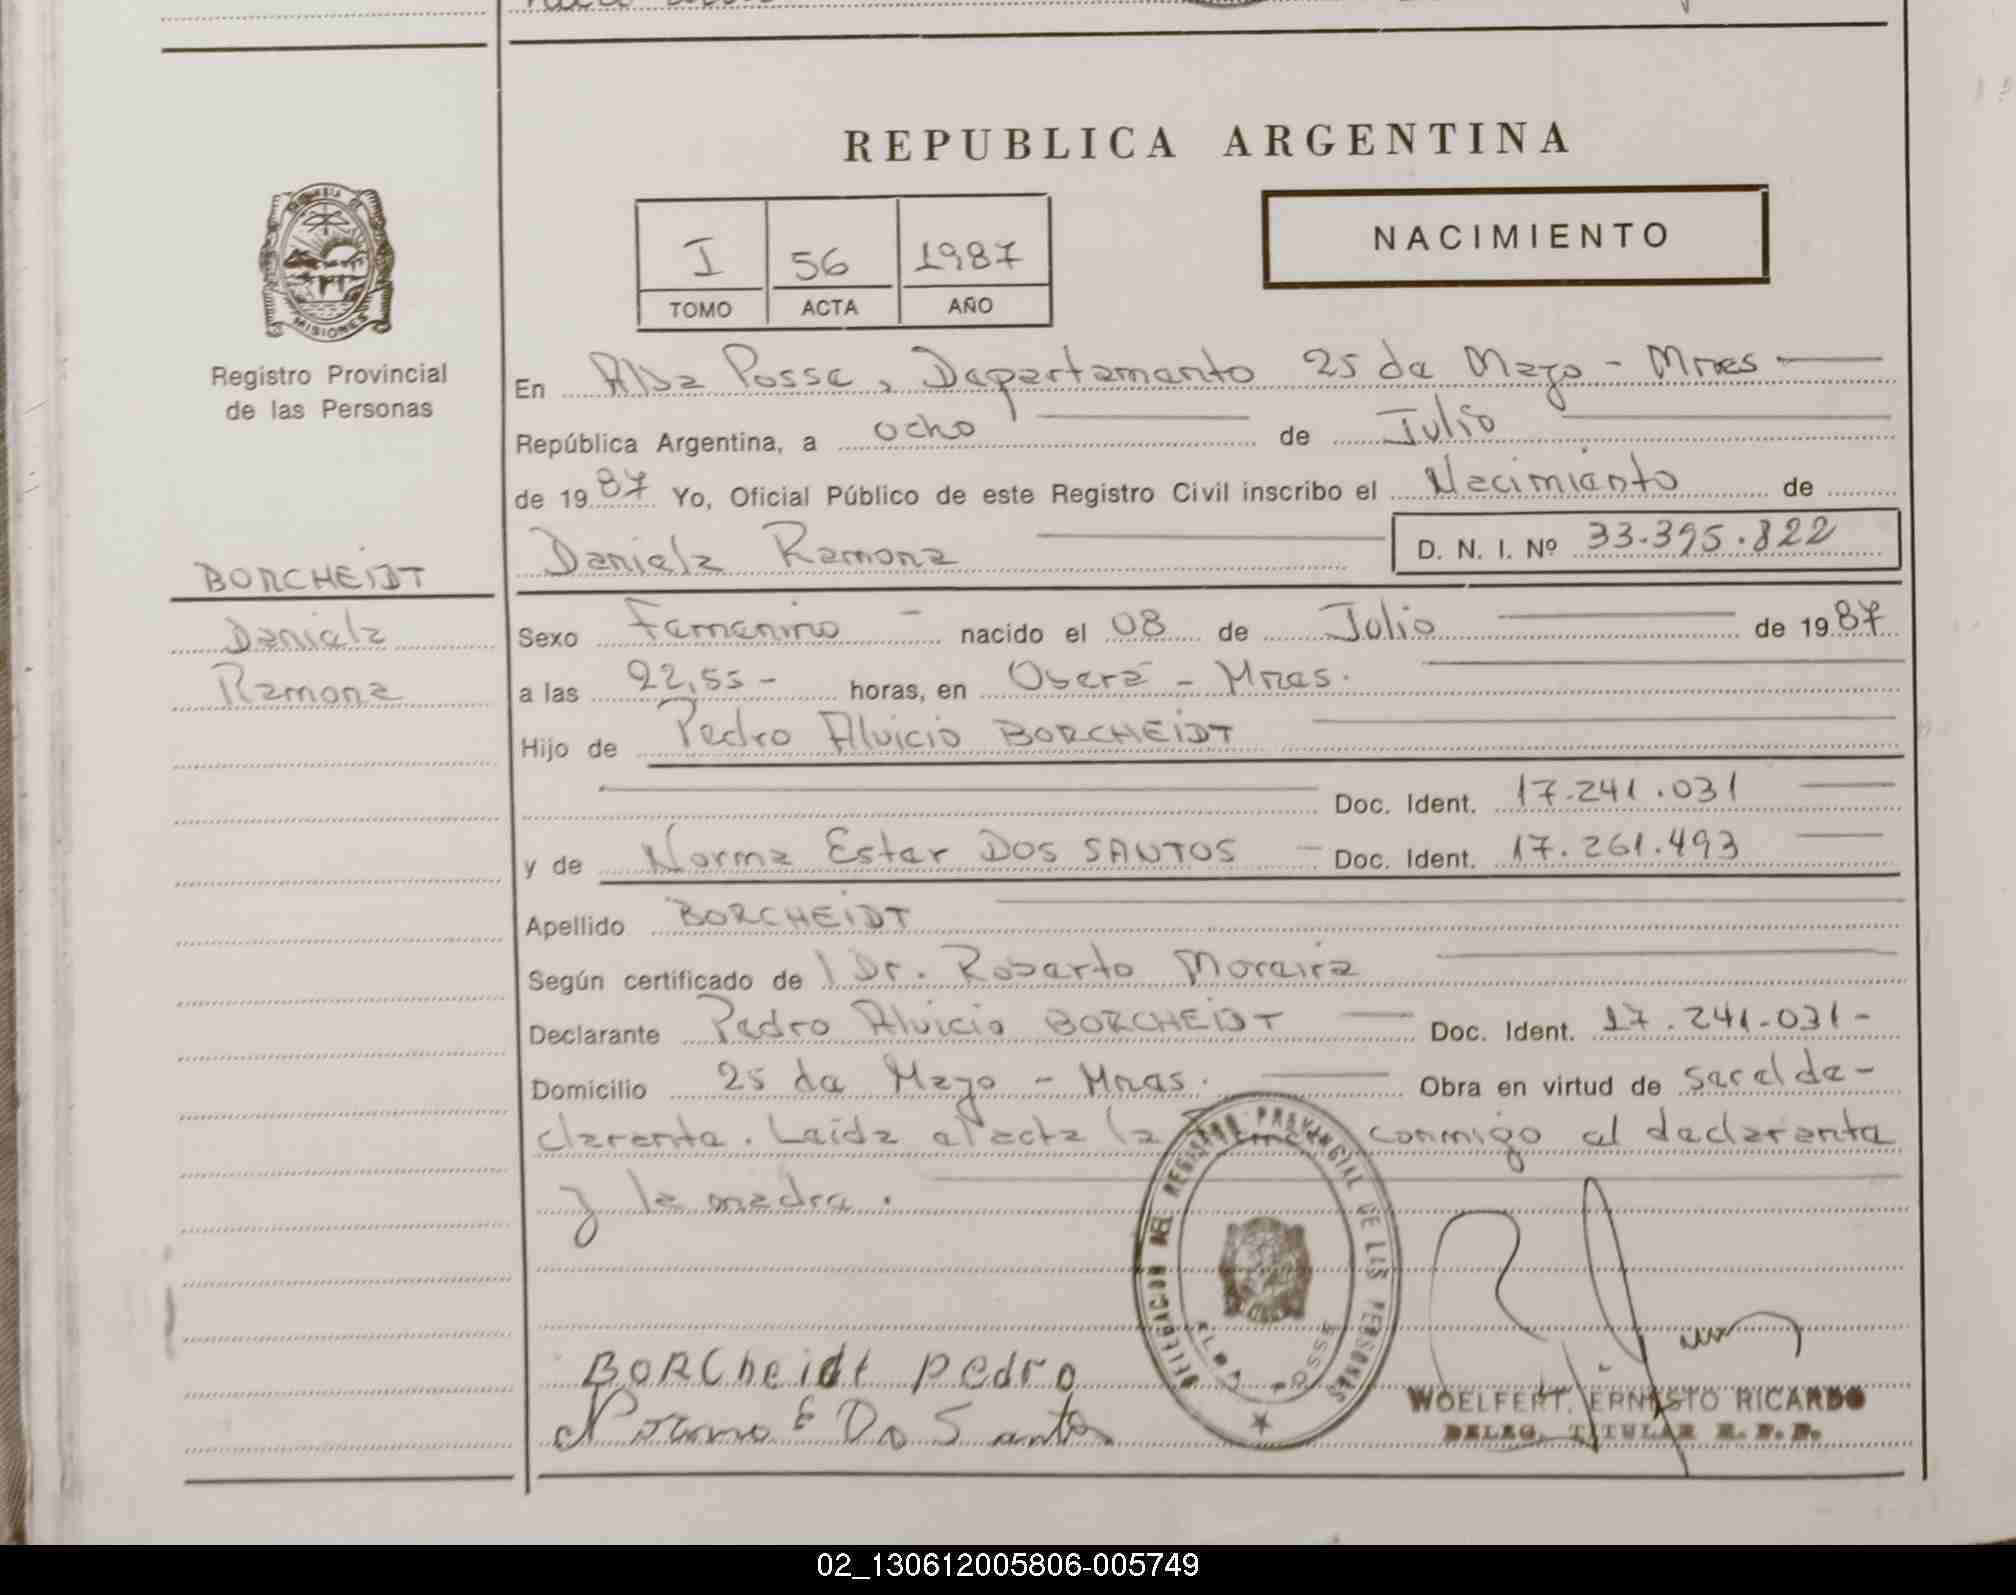 REPUBLICA ARGENTINA
NACIMIENTO
I 56 1987
TOMO ACTA AÑO
MISIONES
Registro Provincial
de las Personas
En Alba Posse, Departamento 25 de Mayo - Mnes
República Argentina, a ocho de Julio
de 1987 Yo, Oficial Público de este Registro Civil inscribo el Nacimiento de
Daniela Ramona D. N. I. Nº 33.395.822
BORCHEIDT
Daniela
Ramona
Sexo Femenino - nacido el 08 de Julio de 1987
a las 22,55 - horas, en Oberá - Mnes.
Hijo de Pedro Alvicio BORCHEIDT
Doc. Ident. 17.241.031
y de Norma Ester DOS SANTOS - Doc. Ident. 17.261.493
Apellido BORCHEIDT
Según certificado de Dr. Roberto Moreira
Declarante Pedro Alvicio BORCHEIDT Doc. Ident. 17.241.031-
Domicilio 25 de Mayo - Mnes. Obra en virtud de ser el de-
clarante. Leída el acta la conmigo el declarante
y la madre.
DELEGACION DEL REGISTRO PROVINCIAL DE LAS PERSONAS
ALBA POSSE
BORCheidt pedro
Norma E Do Santos
WOELFERT, ERNESTO RICARDO
DELEG. TITULAR R. P. P.
02_130612005806-005749